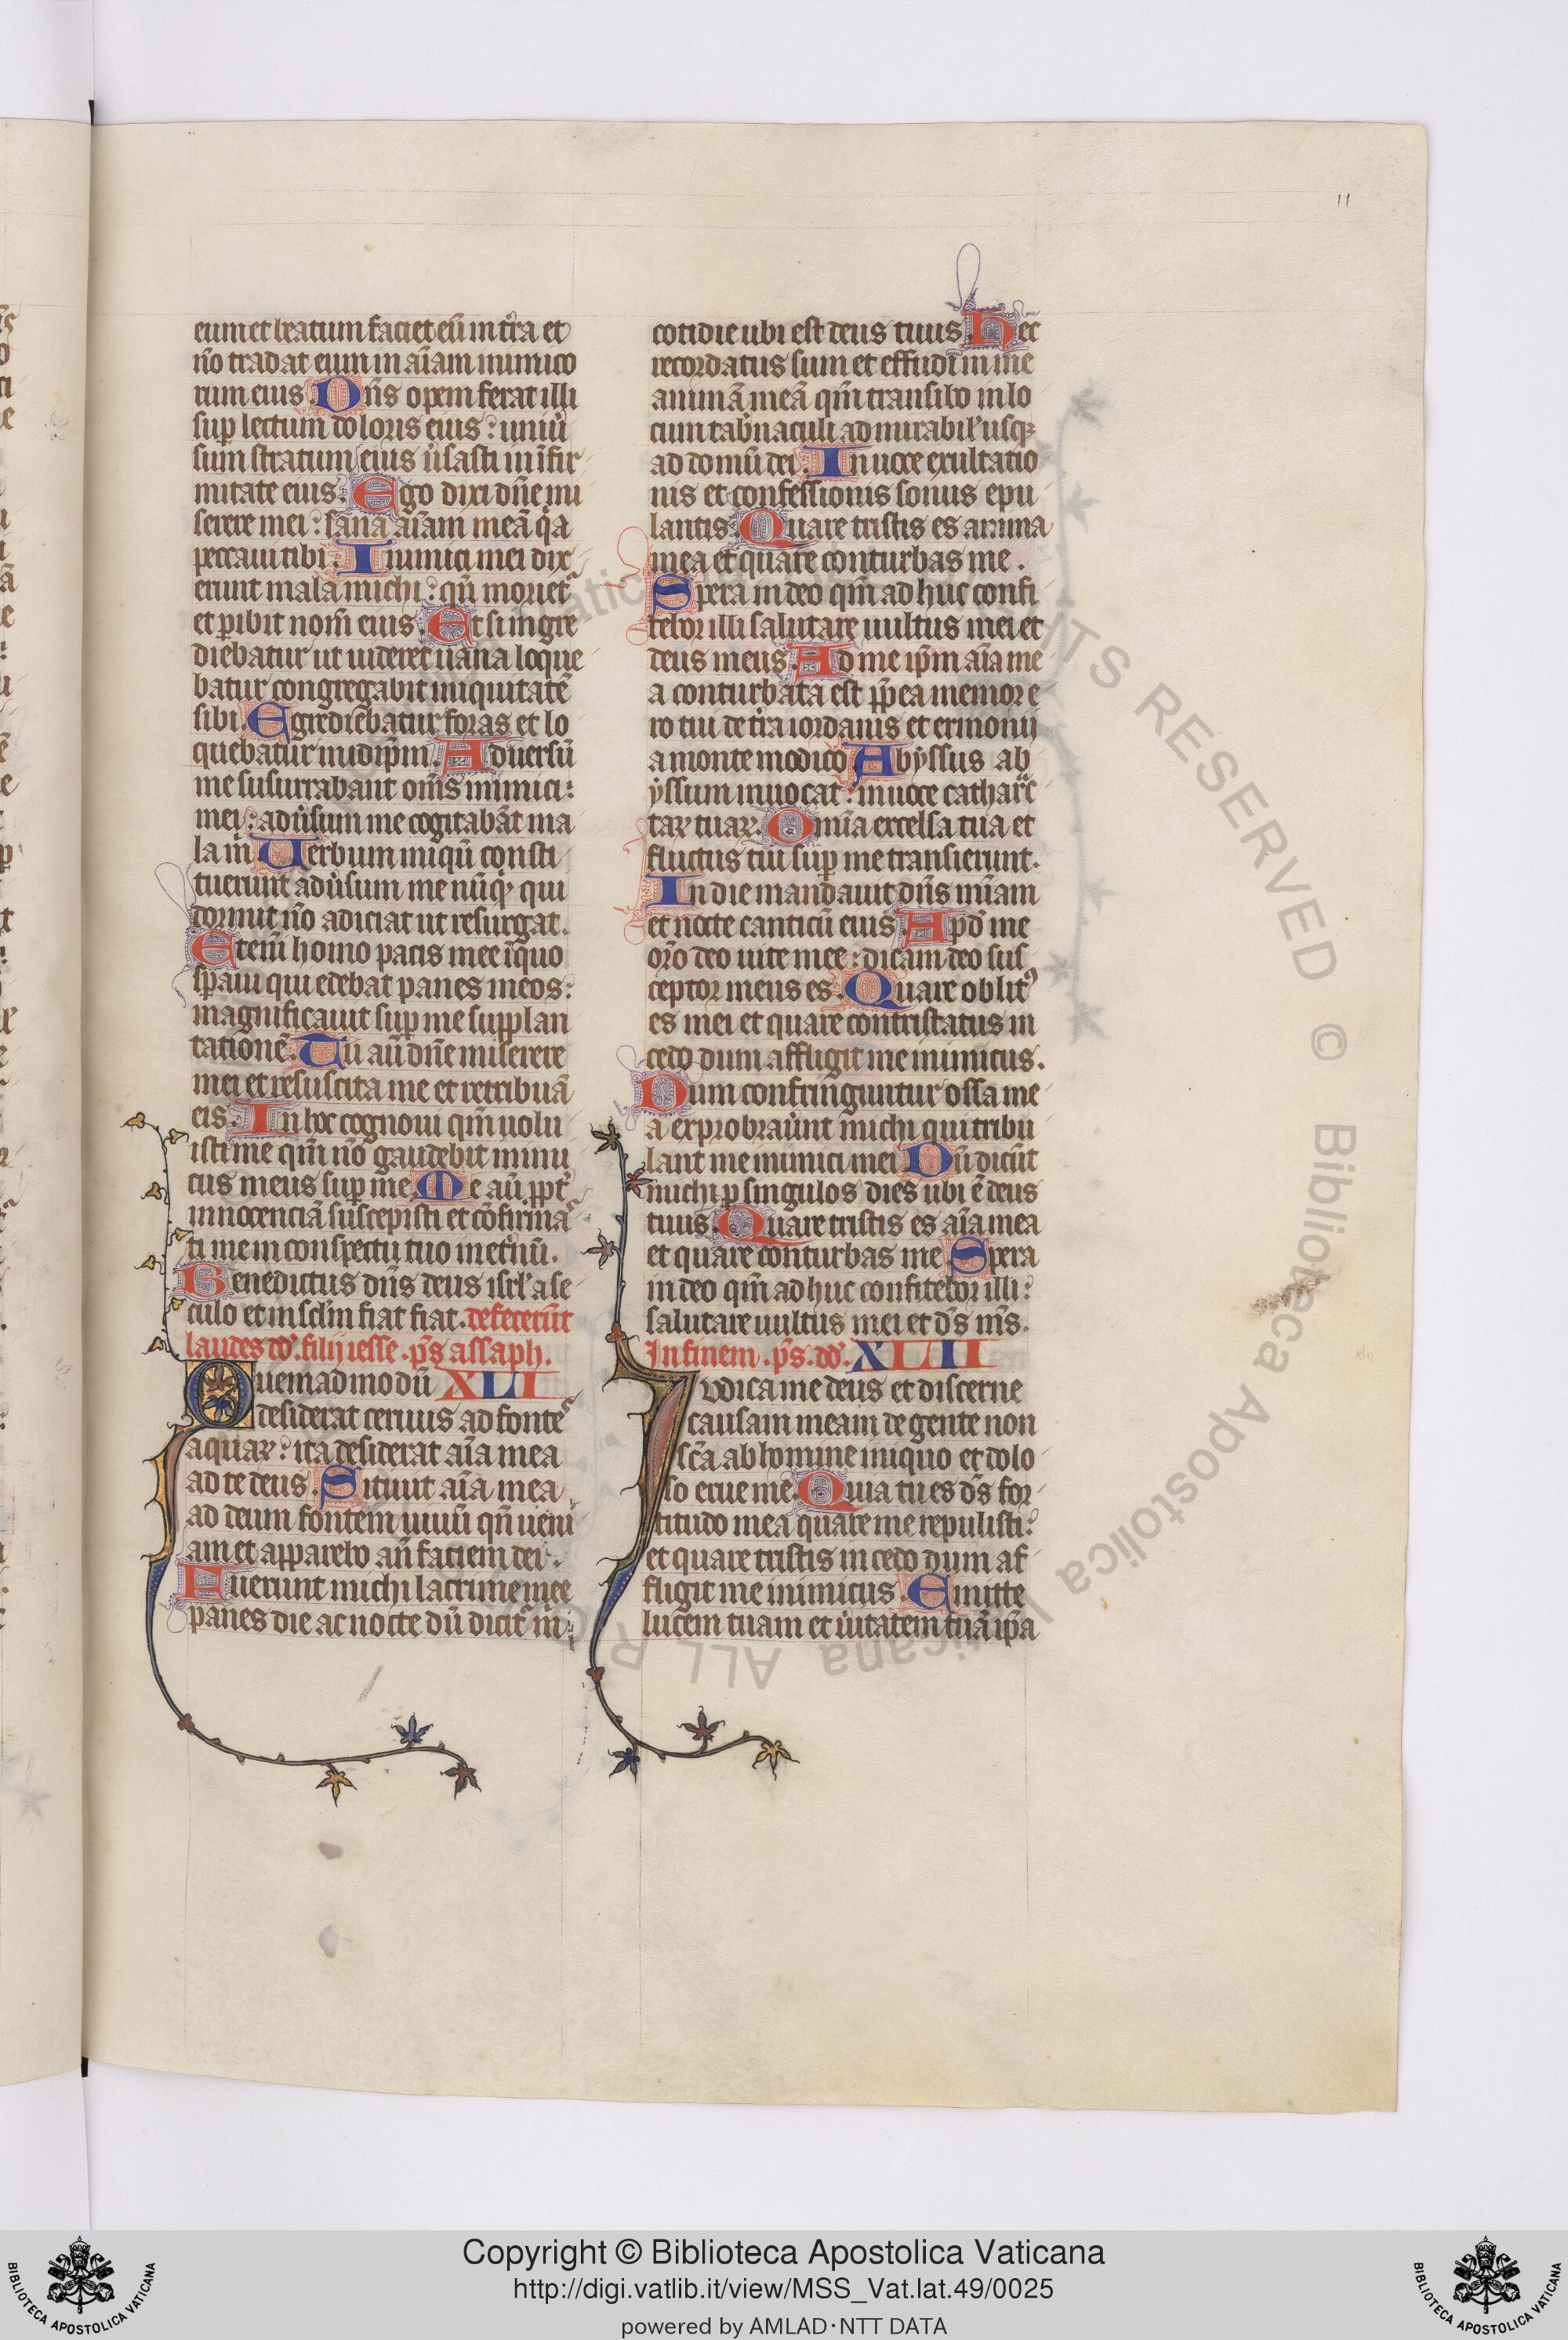 11
eum et beatum faciet eū in t̄ra et
nō tradat eum in aīam inimico
rum eius. Dn̄s opem ferat illi
sup lectum doloris eius: uniū
sum stratum eius ūsasti in īfir
mitate eius. Ego dixi dn̄e mi
serere mei: sana aīam meā qa
peccaui tibi. Inimici mei dix
erunt mala michi: qn̄ moriet
et pibit nom̄ eius. Et si ingre
diebatur ut uideret uana loque
batur congregabit iniquitatē
sibi. Egrediebatur foras et lo
quebatur in idip̄m. Aduersū
me susurrabant om̄s inimici:
mei: adūsum me cogitabāt ma
la m̄. Uerbum iniqū consti
tuerunt adūsum me nūq qui
dormit nō adiciat ut resurgat.
Eteni homo pacis mee īquo
spaui qui edebat panes meos:
magnificauit sup me supplan
tationē. Tu aū dn̄e miserere
mei et resuscita me et retribuā
eis. In hoc cognoui qm̄ uolu
isti me qm̄ nō gaudebit inimi
cus meus sup me. Me aū ppt
innocenciā suscepisti et cōfirma
ti me in conspectu tuo in etnū.
Benedictus dn̄s deus isrl' a se
culo et in sclm fiat fiat. defecerūt
laudes dd. filij iesse. p̄s assaph.
Quemadmodū XLI
desiderat ceruus ad fonte
aquaꝝ: ita desiderat aīa mea
ad te deus. Sitiuit aīa mea
ad deum fontem uiuū qn̄ ueni
am et apparebo an̄ faciem dei.
Fuerunt michi lacrime mee
panes die ac nocte dū dicit m̄
cotidie ubi est deus tuus. Hec
recordatus sum et effudi in me
animā meā qm̄ transibo in lo
cum tabnaculi admirabil' usq
ad domū dei. In uoce exultatio
nis et confessionis sonus epu
lantis. Quare tristis es anima
mea et quare conturbas me.
Spera in deo qm̄ ad huc confi
tebor illi salutare uultus mei et
deus meus. Ad me ip̄m aīa me
a conturbata est pp̄ea memor e
ro tui de t̄ra iordanis et ermonij
a monte modico. Abyssus ab
yssum inuocat: in uoce cathar̄c
taꝝ tuaꝝ. Om̄ia excelsa tua et
fluctus tui sup me transierunt.
In die mandauit dn̄s mīam
et nocte canticū eius. Apd me
orō deo uite mee: dicam deo sus
ceptor meus es. Quare oblit9
es mei et quare contristatus in
cedo dum affligit me inimicus.
Dum confringuntur ossa me
a exprobraūnt michi qui tribu
lant me inimici mei. Dū dicūt
michi p singulos dies ubi ē deus
tuus. Quare tristis es aīa mea
et quare conturbas me. Spera
in deo qm̄ ad huc confitebor illi:
salutare uultus mei et d̄s m̄s.
In finem. p̄s. dd. XLII
Iudica me deus et discerne
causam meam de gente non
sc̄a ab homine iniquo et dolo
so erue me. Quia tu es d̄s for
titudo mea quare me repulisti:
et quare tristis incedo dum af
fligit me inimicus. Emitte
lucem tuam et ūitatem tuā ip̄a
Copyright © Biblioteca Apostolica Vaticana
http://digi.vatlib.it/view/MSS_Vat.lat.49/0025
powered by AMLAD·NTT DATA
BIBLIOTECA APOSTOLICA VATICANA
BIBLIOTECA APOSTOLICA VATICANA